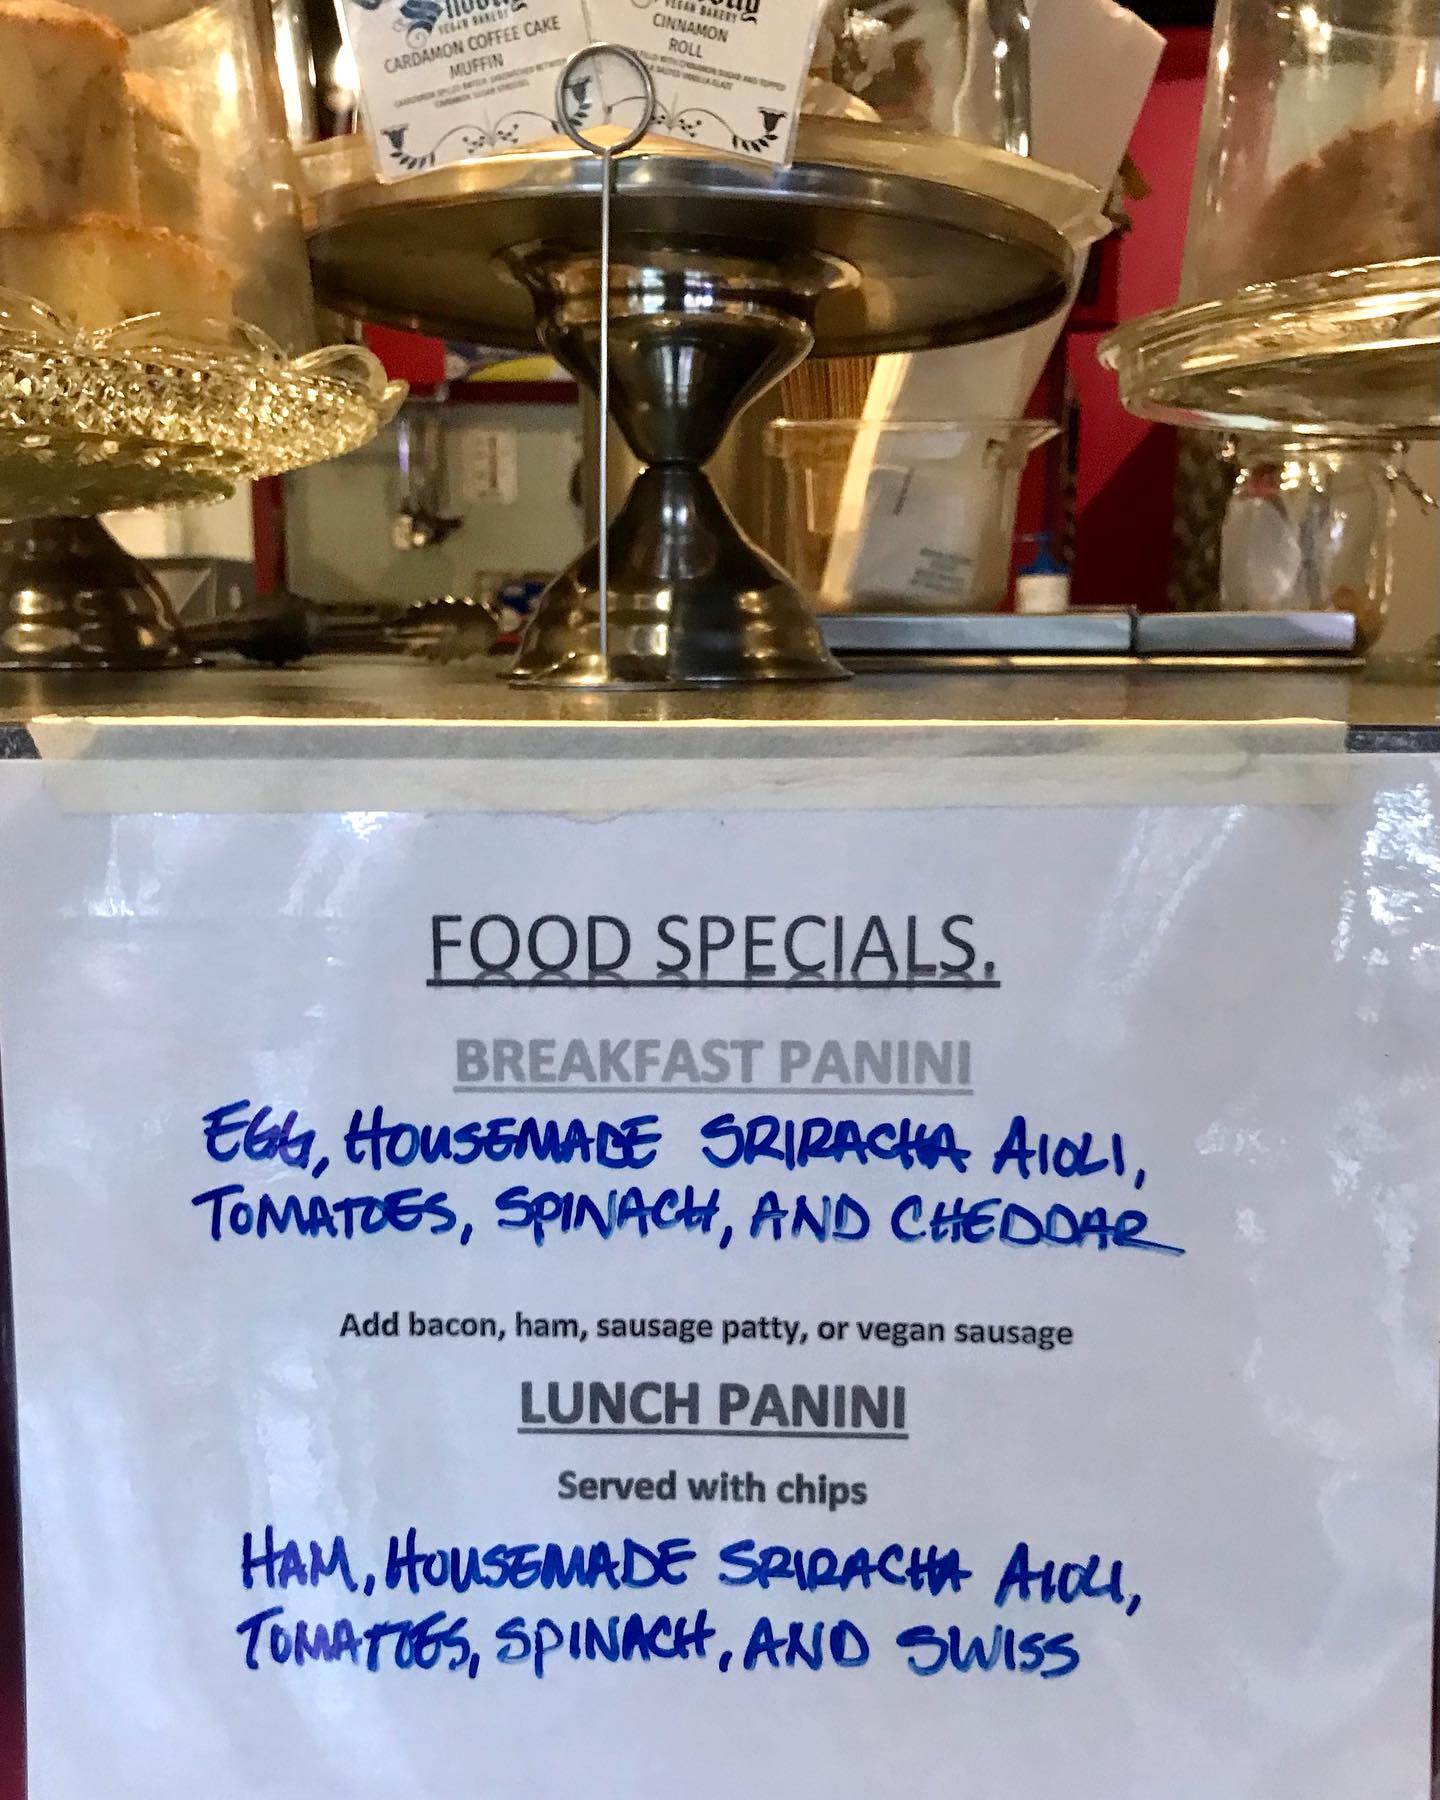 VEGAN BAKERY
CARDAMON COFFEE CAKE
MUFFIN
VEGAN BAKERY
CINNAMON
ROLL
FOOD SPECIALS.
BREAKFAST PANINI
EGG, HOUSEMADE SRIRACHA AIOLI,
TOMATOES, SPINACH, AND CHEDDAR
Add bacon, ham, sausage patty, or vegan sausage
LUNCH PANINI
Served with chips
HAM, HOUSEMADE SRIRACHA AIOLI,
TOMATOES, SPINACH, AND SWISS